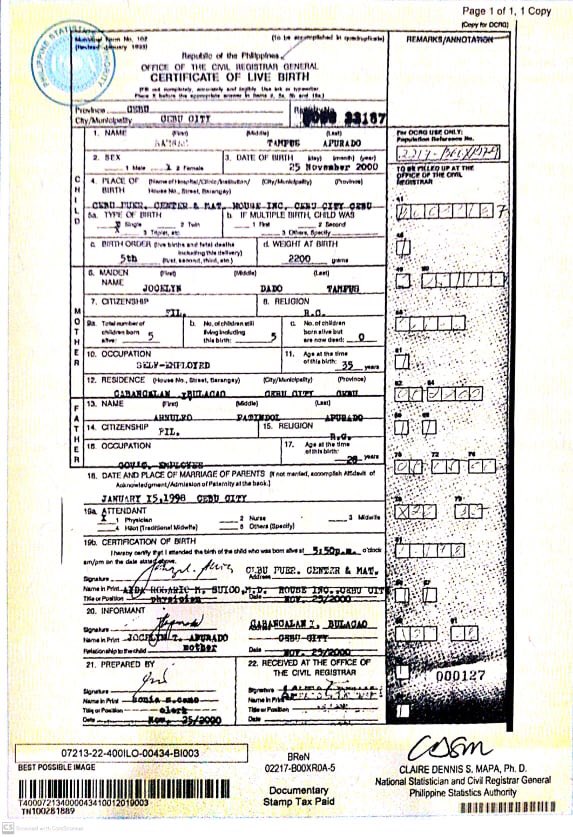 Page 1 of 1, 1 Copy
(Copy for OCRG)
Municipal Form No. 102
(Revised January 1993)
(to be accomplished in quadruplicate)
REMARKS/ANNOTATION
Republic of the Philippines
OFFICE OF THE CIVIL REGISTRAR GENERAL
CERTIFICATE OF LIVE BIRTH
(Fill out completely, accurately and legibly. Use ink or typewriter.
Place X before the appropriate answer in Items 2, 5a, 5b and 19a.)
Province CEBU
City/Municipality CEBU CITY
Registry No. 23187
1. NAME (First) (Middle) (Last)
TAMPUS APURADO
For OCRG USE ONLY:
Population Reference No.
2. SEX
1 Male X 2 Female
3. DATE OF BIRTH (day) (month) (year)
25 November 2000
TO BE FILLED UP AT THE
OFFICE OF THE CIVIL
REGISTRAR
CHILD
4. PLACE OF BIRTH (Name of Hospital/Clinic/Institution/ (City/Municipality) (Province)
House No., Street, Barangay)
CEBU PUER. CENTER & MAT. HOUSE INC, CEBU CITY CEBU
5a. TYPE OF BIRTH
X 1 Single 2 Twin
3 Triplet, etc.
b. IF MULTIPLE BIRTH, CHILD WAS
1 First 2 Second
3 Others, Specify
c. BIRTH ORDER (live births and fetal deaths
including this delivery)
5th (first, second, third, etc.)
d. WEIGHT AT BIRTH
2200 grams
MOTHER
6. MAIDEN NAME (First) (Middle) (Last)
JOCELYN DADO TAMPUS
7. CITIZENSHIP
FIL.
8. RELIGION
R.C.
9a. Total number of children born alive: 5
b. No. of children still living including this birth: 5
c. No. of children born alive but are now dead: 0
10. OCCUPATION
SELF-EMPLOYED
11. Age at the time of this birth: 35 years
12. RESIDENCE (House No., Street, Barangay) (City/Municipality) (Province)
BULACAO CEBU CITY CEBU
FATHER
13. NAME (First) (Middle) (Last)
ARNULFO APURADO
14. CITIZENSHIP
FIL.
15. RELIGION
R.C.
16. OCCUPATION
GOVT. EMPLOYEE
17. Age at the time of this birth: years
18. DATE AND PLACE OF MARRIAGE OF PARENTS (If not married, accomplish Affidavit of
Acknowledgment/Admission of Paternity at the back.)
JANUARY 15,1998 CEBU CITY
19a. ATTENDANT
X 1 Physician 2 Nurse 3 Midwife
4 Hilot (Traditional Midwife) 5 Others (Specify)
19b. CERTIFICATION OF BIRTH
I hereby certify that I attended the birth of the child who was born alive at 5:50p.m. o'clock
am/pm on the date stated above.
Signature
Address CEBU PUER. CENTER & MAT.
Name in Print M.D. HOUSE INC., CEBU CITY
Title or Position physician
Date NOV. 25/2000
20. INFORMANT
Signature
Address BULACAO
Name in Print JOCELYN T. APURADO
CEBU CITY
Relationship to the child mother
Date NOV. 25/2000
21. PREPARED BY
22. RECEIVED AT THE OFFICE OF
THE CIVIL REGISTRAR
Signature
Name in Print
Title or Position clerk
Date Nov. 25/2000
Signature
Name in Print
Title or Position
Date
000127
07213-22-400ILO-00434-BI003
BEST POSSIBLE IMAGE
T40007213400043410012019003
TN100281889
BReN
02217-B00XR0A-5
Documentary
Stamp Tax Paid
CLAIRE DENNIS S. MAPA, Ph. D.
National Statistician and Civil Registrar General
Philippine Statistics Authority
CS Scanned with CamScanner